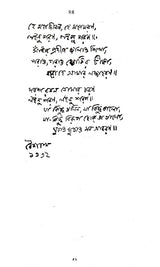 হে মহাজীবন, হে মহামরণ,
লইনু শরণ, লইনু শরণ॥
আঁধার প্রদীপে জ্বালাও শিখা,
পরাও, পরাও জ্যোতির টিকা,
করো হে আমার লজ্জাহরণ॥
পরশরতন তোমারি চরণ
লইনু শরণ, লইনু শরণ।
যা-কিছু মলিন, যা-কিছু কালো,
যা-কিছু বিরূপ হোক তা ভালো,
ঘুচাও ঘুচাও সব আবরণ॥